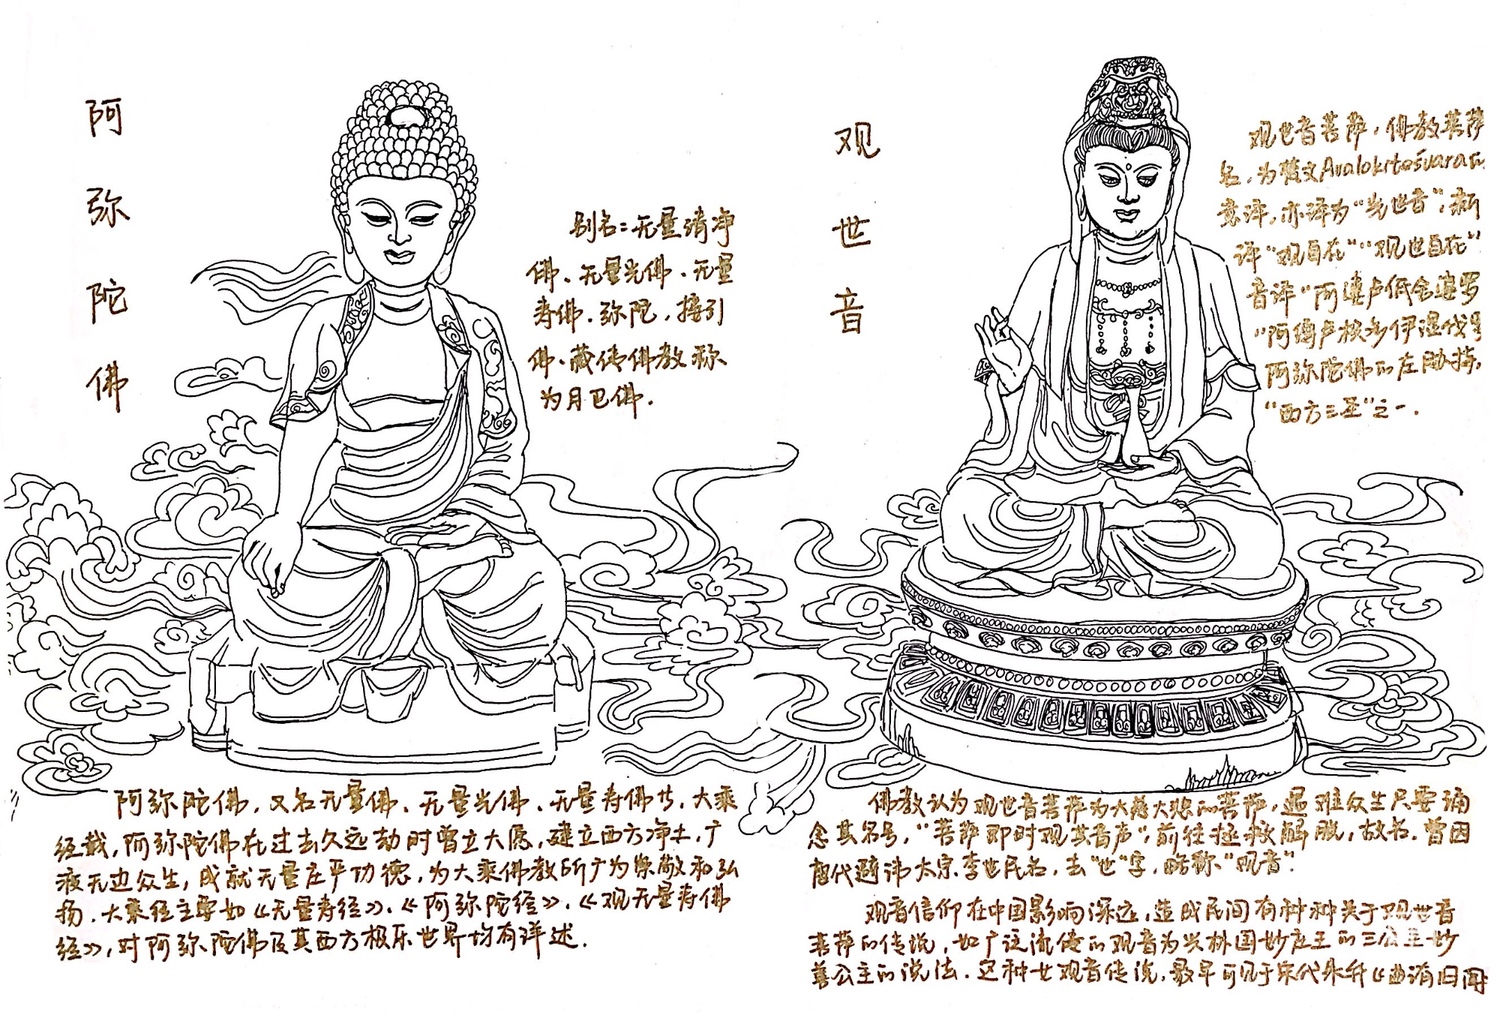 阿弥陀佛
别名：无量清净
佛、无量光佛、无量
寿佛、弥陀，接引
佛、藏传佛教称
为月巴佛.
阿弥陀佛，又名无量佛、无量光佛、无量寿佛等，大乘
经载，阿弥陀佛在过去久远劫时曾立大愿，建立西方净土，广
度无边众生，成就无量庄严功德，为大乘佛教所广为崇敬和弘
扬.大乘经主要如《无量寿经》、《阿弥陀经》、《观无量寿佛
经》，对阿弥陀佛及其西方极乐世界均有详述.
观世音
观世音菩萨，佛教菩萨
名，为梵文Avalokiteśvara的
意译，亦译为“光世音”，新
译“观自在”“观世自在”
音译“阿
阿弥陀佛的左胁持，
“西方三圣”之一.
佛教认为观世音菩萨为大慈大悲的菩萨，遇难众生只要诵
念其名号，“菩萨即时观其音声”，前往拯救解脱，故名.曾因
唐代避讳太宗李世民名，去“世”字，略称“观音”.
观音信仰在中国影响深远，造成民间有种种关于观世音
菩萨的传说，如广泛流传的观音为兴林国妙庄王的三公主妙
善公主的说法.这种女观音传说，最早可见于宋代朱弁《曲洧旧闻